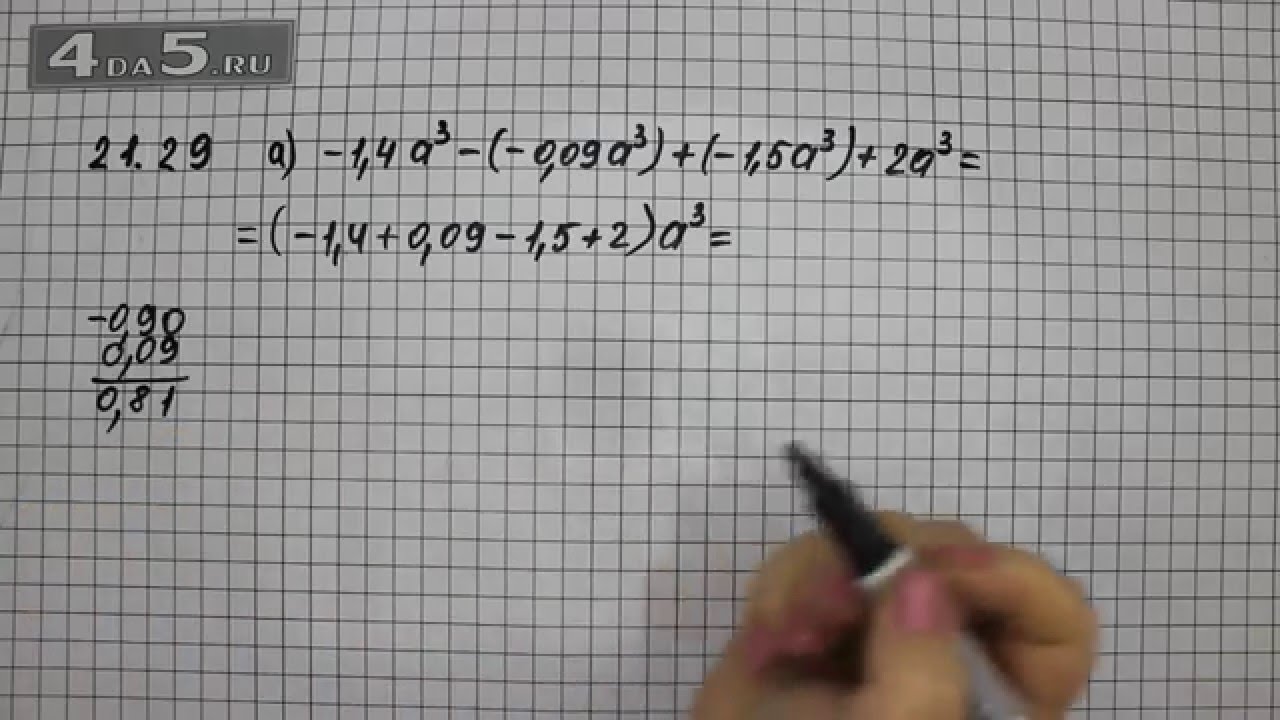 4DA5.RU
21.29 a) -1,4a³-(-0,09a³)+(-1,5a³)+2a³=
=(-1,4+0,09-1,5+2)a³=
-0,90
0,09
0,81